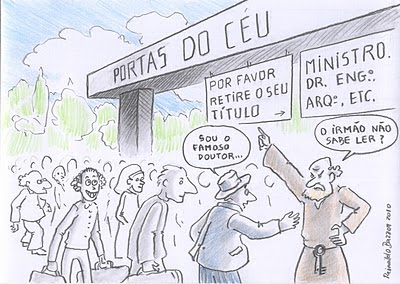 PORTAS DO CÉU
POR FAVOR
RETIRE O SEU
TÍTULO →
MINISTRO.
DR. ENGº.
ARQº, ETC.
SOU O
FAMOSO
DOUTOR...
O IRMÃO NÃO
SABE LER?
2010